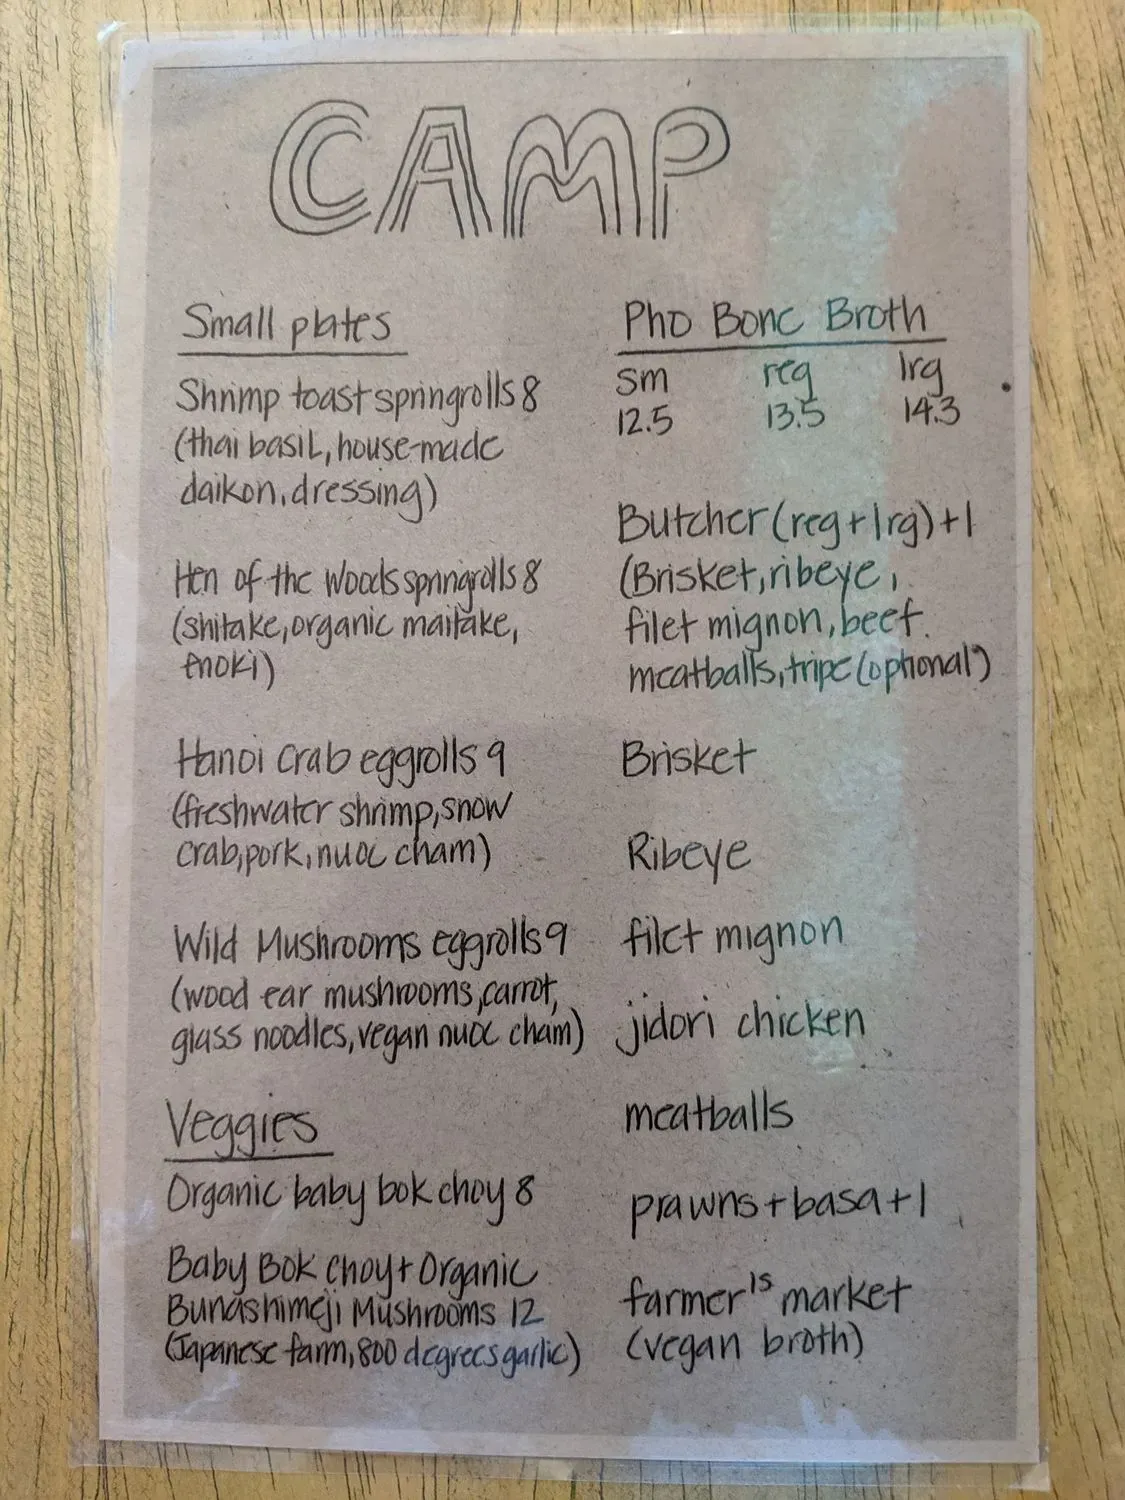 CAMP
Small plates
Shrimp toast springrolls 8
(thai basil, house-made
daikon, dressing)
Hen of the Woods springrolls 8
(shitake, organic maitake,
enoki)
Hanoi Crab eggrolls 9
(freshwater shrimp, snow
crab, pork, nuoc cham)
Wild Mushrooms eggrolls 9
(wood ear mushrooms, carrot,
glass noodles, vegan nuoc cham)
Veggies
Organic baby bok choy 8
Baby Bok Choy + Organic
Bunashimeji Mushrooms 12
(Japanese farm, 800 degrees garlic)
Pho Bone Broth
sm reg lrg
12.5 13.5 14.3
Butcher (reg + lrg) + 1
(Brisket, ribeye,
filet mignon, beef
meatballs, tripe (optional)
Brisket
Ribeye
filet mignon
jidori chicken
meatballs
prawns + basa + 1
farmer's market
(vegan broth)